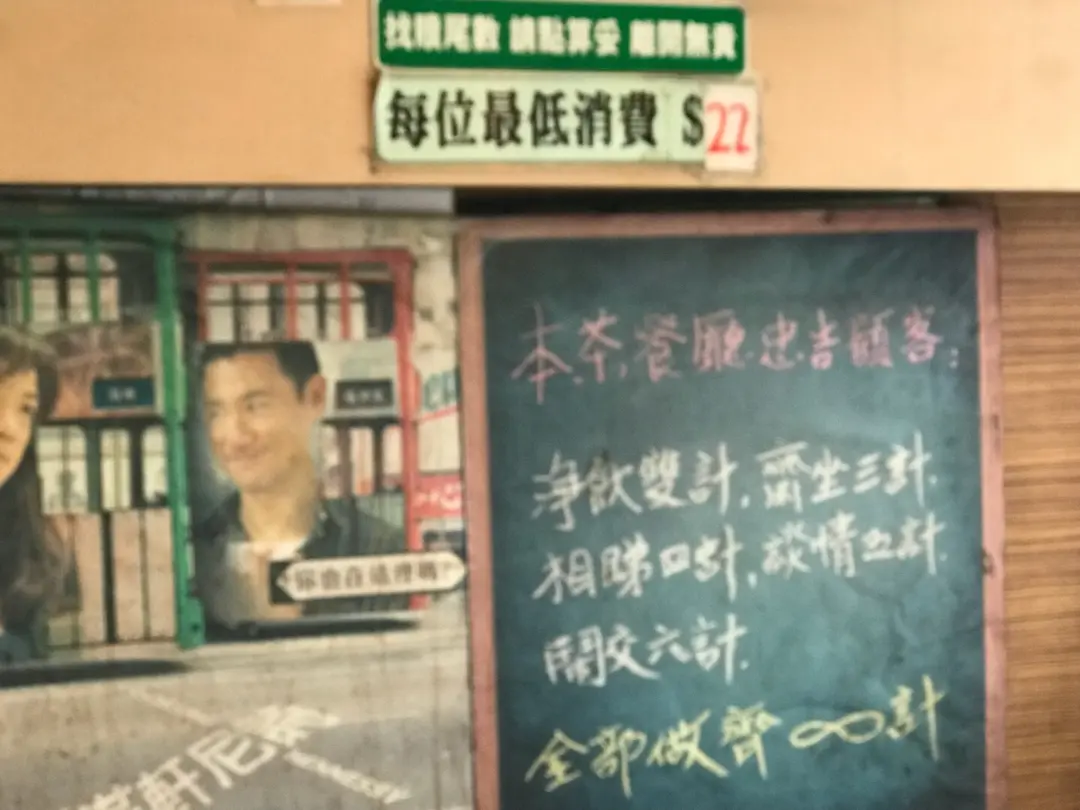 找贖尾數 請點算妥 離開無責
每位最低消費 $22
本茶餐廳忠告顧客:
淨飲雙計,齋坐三計.
相睇四計,談情五計.
鬧交六計.
全部做齊∞計
你也在這裡嗎?
軒尼
HENNESSY